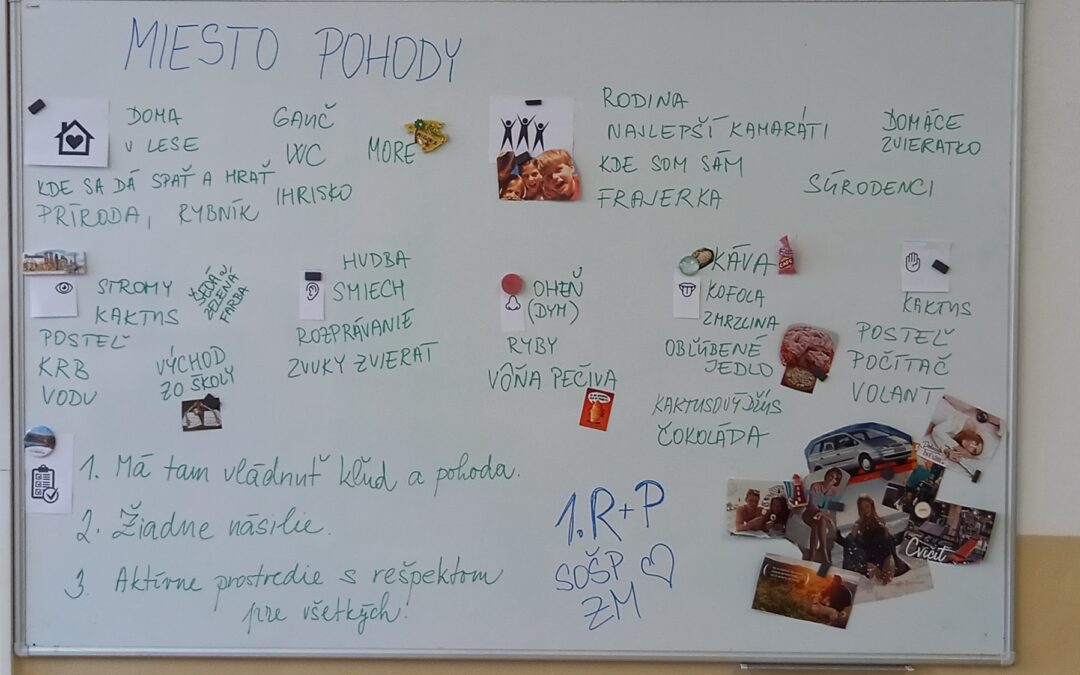 MIESTO POHODY
DOMA
V LESE
GAUČ
WC
MORE
KDE SA DÁ SPAŤ A HRAŤ
IHRISKO
PRÍRODA, RYBNÍK
RODINA
NAJLEPŠÍ KAMARÁTI
KDE SOM SÁM
FRAJERKA
DOMÁCE
ZVIERATKO
SÚRODENCI
STROMY
KAKTUS
ŠEDÁ
ZELENÁ
FARBA
POSTEĽ
KRB
VODU
VÝCHOD
ZO ŠKOLY
HUDBA
SMIECH
ROZPRÁVANIE
ZVUKY ZVIERAT
OHEŇ
(DYM)
RYBY
VÔŇA PEČIVA
KÁVA
KOFOLA
ZMRZLINA
OBĽÚBENÉ
JEDLO
KAKTUSOVÝ DŽÚS
ČOKOLÁDA
KAKTUS
POSTEĽ
POČÍTAČ
VOLANT
1. Má tam vládnuť kľud a pohoda.
2. Žiadne násilie.
3. Aktívne prostredie s rešpektom
pre všetkých!
1.R+P
SOŠP
ZM
Cvičiť